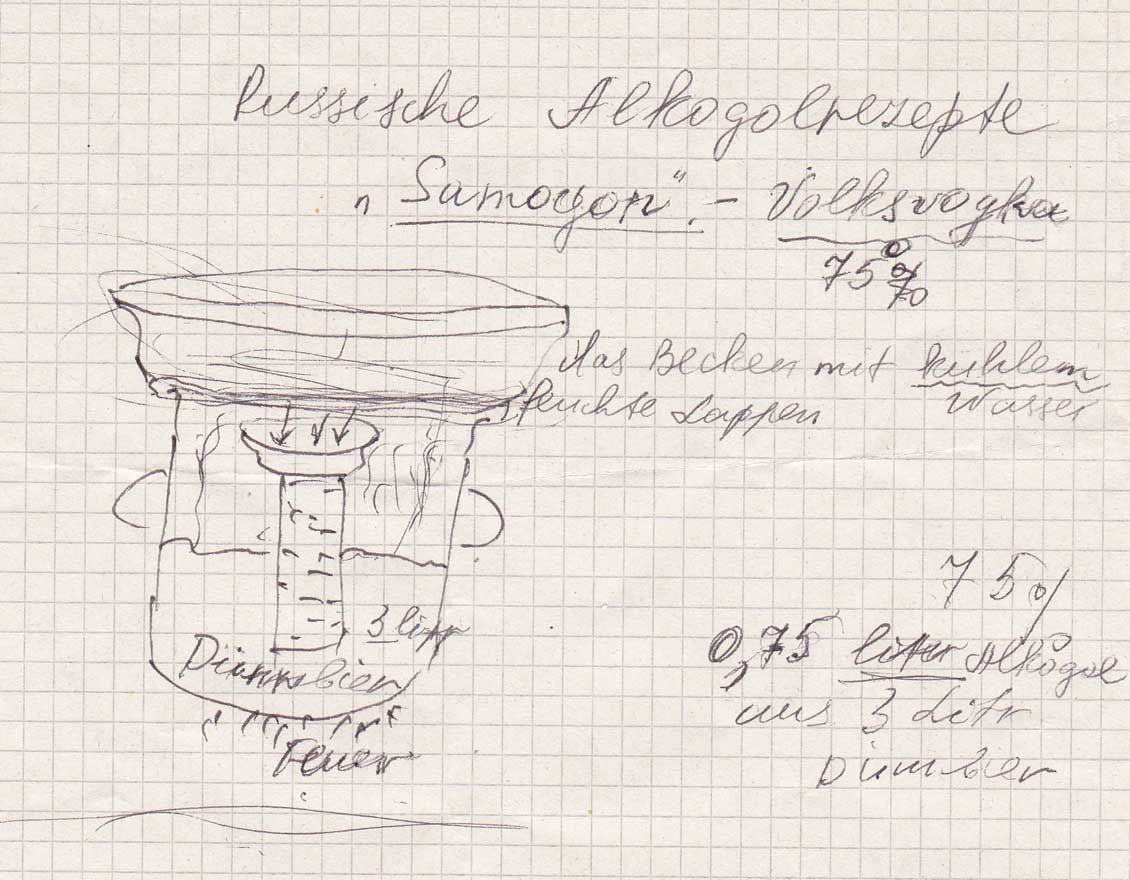 Russische Alkogolrezepte
„Samogon“ – Volksvogka
75%
das Becken mit kuhlem
Wasser
feuchte Lappen
3 litr
Dünnbier
Feuer
75%
0,75 liter Alkogol
aus 3 Litr
Dünnbier